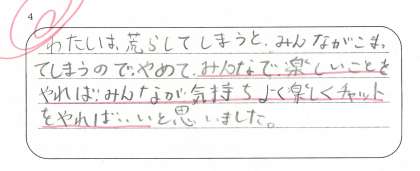 4
わたしは、荒らしてしまうと、みんながこまっ
てしまうので、やめて、みんなで、楽しいことを
やれば、みんなが気持ちよく楽しくチャット
をやればいいと思いました。